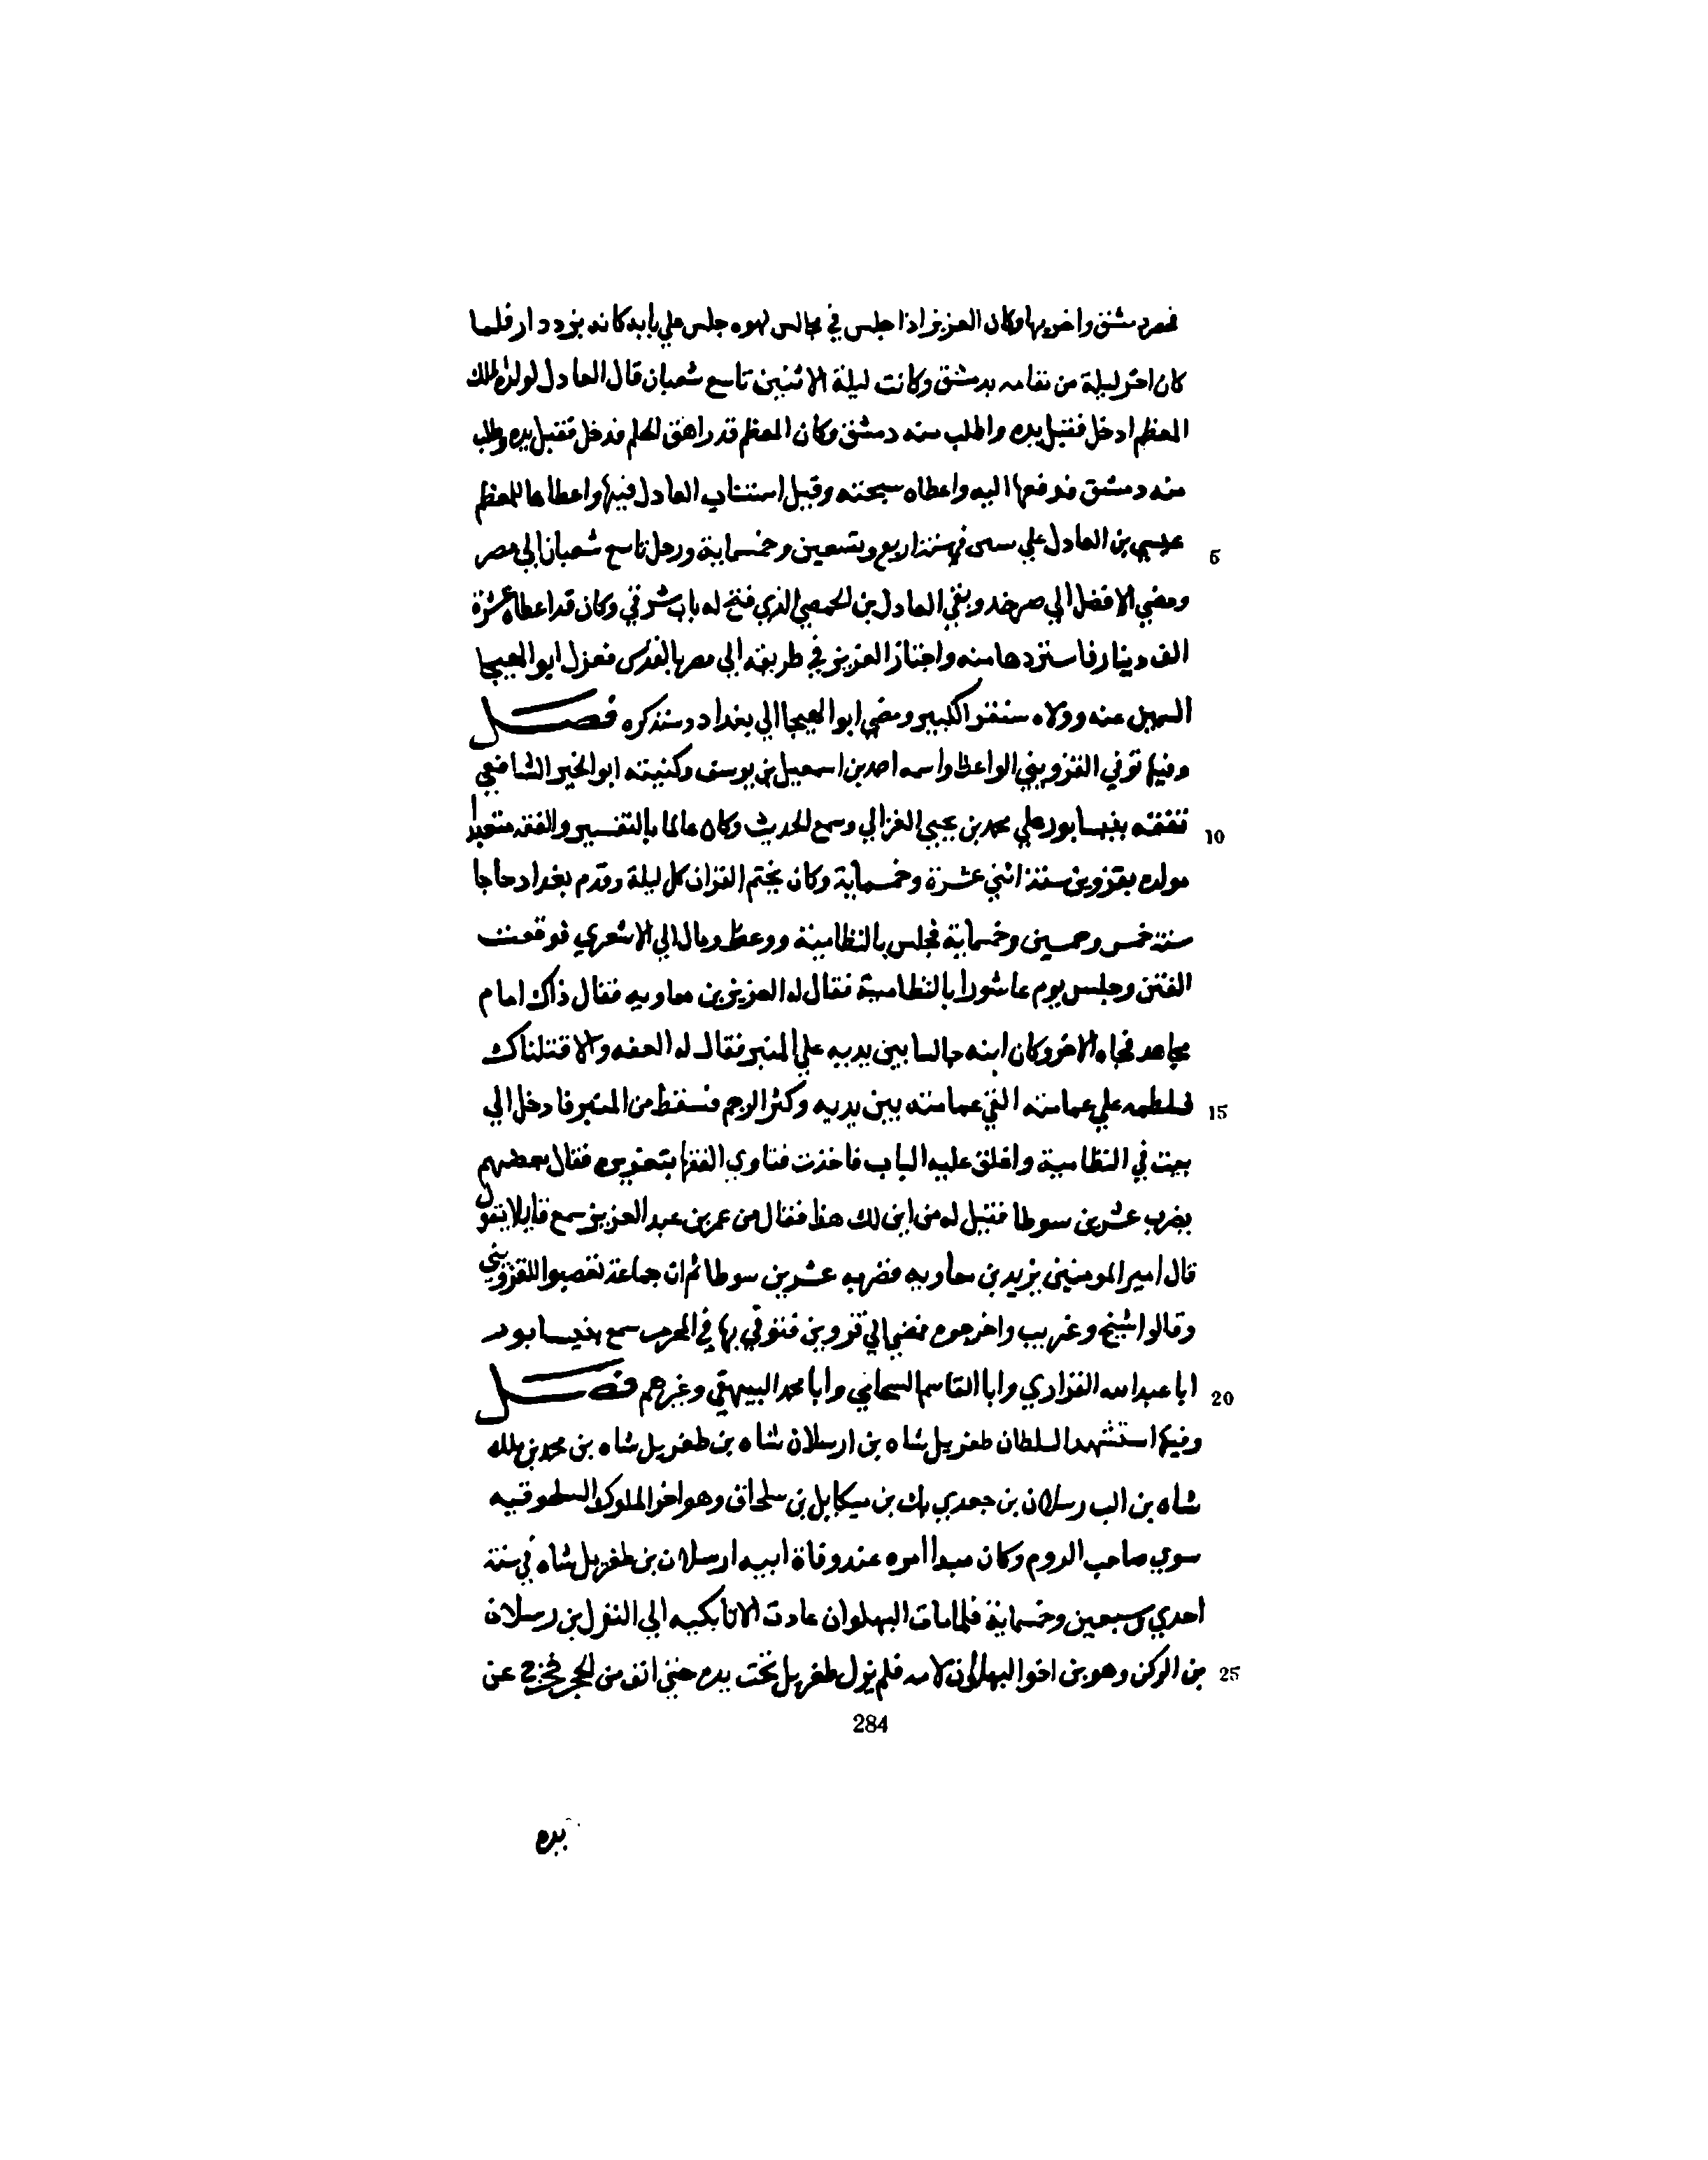 فعمر دمشق واخربها وكان العزيز اذا جلس في مجالس لهوه جلس علي بابه كانه بزددار فلما
كان اخر ليلة من مقامه بدمشق وكانت ليلة الاثنين تاسع شعبان قال العادل لولده الملك
المعظم ادخل فقبل يده واطلب منه دمشق وكان المعظم قد راهق الحلم فدخل فقبل يده وطلب
منه دمشق فدفعها اليه واعطاه سبحته وقيل استناب العادل فيها واعطاها للمعظم
عيسي بن العادل علي سنة اربع وتسعين وخمسماية ورحل تاسع شعبان الي مصر
5
ومضي الافضل الي صرخد وبقي العادل بن الحمصي الذي فتح له باب شرقي وكان قد اعطاه عشرة
الف دينار فاستردها منه واجتاز العزيز في طريقه الي مصر بالقدس فعزل ابو الهيجا
السمين عنه وولاه سنقر الكبير ومضي ابو الهيجا الي بغداد وسنذكره فصل
وفيها توفي القزويني الواعظ واسمه احمد بن اسمعيل بن يوسف وكنيته ابو الخير الشافعي
تفقه بنيسابور علي محمد بن يحيي الغزالي وسمع الحديث وكان عالما بالتفسير والفقه متعبدا
10
مولده بقزوين سنة اثني عشرة وخمسماية وكان يختم القران كل ليلة وقدم بغداد حاجا
سنة خمس وخمسين وخمسماية فجلس بالنظامية ووعظ ومال الي الاشعري فوقعت
الفتن وجلس يوم عاشورا بالنظامية فقال له العن يزيد بن معاويه فقال ذاك امام
مجاهد فجاه الاخر وكان ابنه جالسا بين يديه علي المنبر فقال له العنه والا قتلناك
فلطمه علي عمامته القي عمامته بين يديه وكثر الرجم فسقط من المنبر فادخل الي
15
بيت في النظامية واغلق عليه الباب فاخذت فتاوي الفقها بتعزيره فقال بعضهم
يضرب عشرين سوطا فقيل له من اين لك هذا فقال من عمر بن عبد العزيز سمع قايلا يقول
قال امير المومنين يزيد بن معاويه فضربه عشرين سوطا ثم ان جماعة تعصبوا للقزويني
وقالوا شيخ وغريب واخرجوه فمضي الي قزوين فتوفي بها في المحرم سمع بنيسابور
ابا عبد الله الفراوي وابا القاسم السحامي وابا محمد البيهقي وغيرهم فصل
20
وفيها استشهد السلطان طغريل شاه بن ارسلان شاه بن طغريل شاه بن محمد بن ملك
شاه بن الب رسلان بن جعدي بك بن ميكايل بن سلجاق وهو اخر الملوك السلجوقيه
سوي صاحب الروم وكان مبدا امره عند وفاة ابيه ارسلان بن طغريل شاه في سنة
احدي وسبعين وخمسماية فلما مات البهلوان عادت الاتابكيه الي القزل بن رسلان
بن الركن وهو بن اخو البهلوان لامه فلم يزل طغريل تحت يده حتي انف من الحجر فخرج عن
25
284
يده